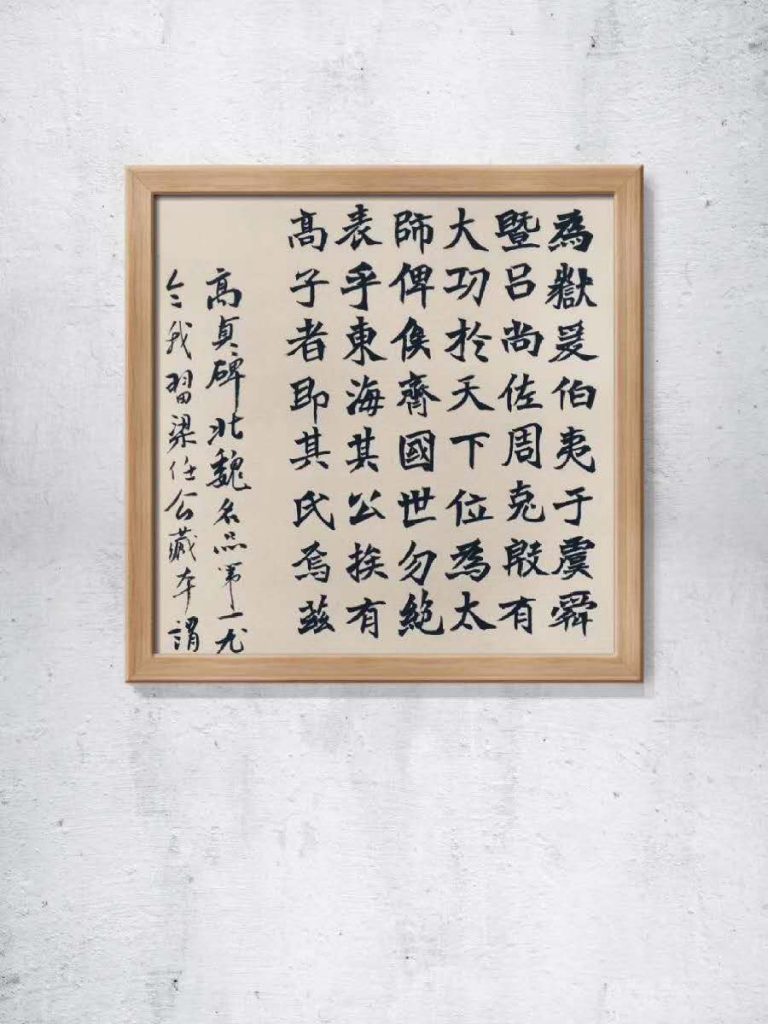 為嶽爰伯夷于虞舜
暨呂尚佐周克殷有
大功於天下位為太
師俾侯齊國世勿絕
表乎東海其公族有
高子者即其氏焉茲
高貞碑北魏名品第一尤
令我習梁任公藏本謂